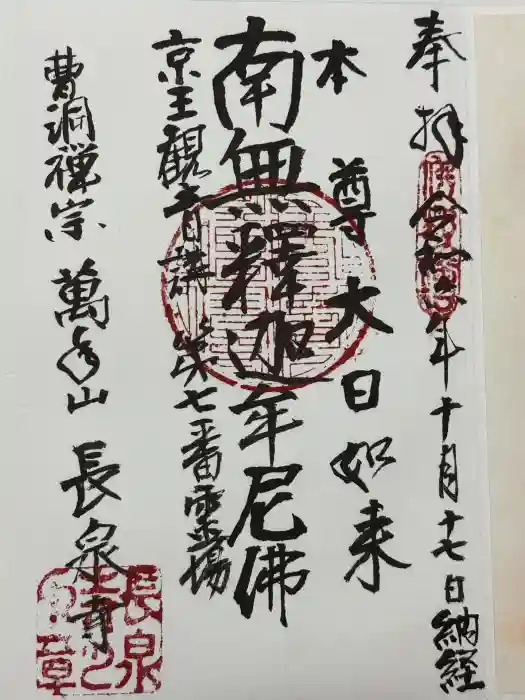 奉拝
令和六年十月十七日納経
本尊大日如来
南無釋迦牟尼佛
京王觀音講第七番霊場
曹洞禅宗萬年山長泉寺
長泉